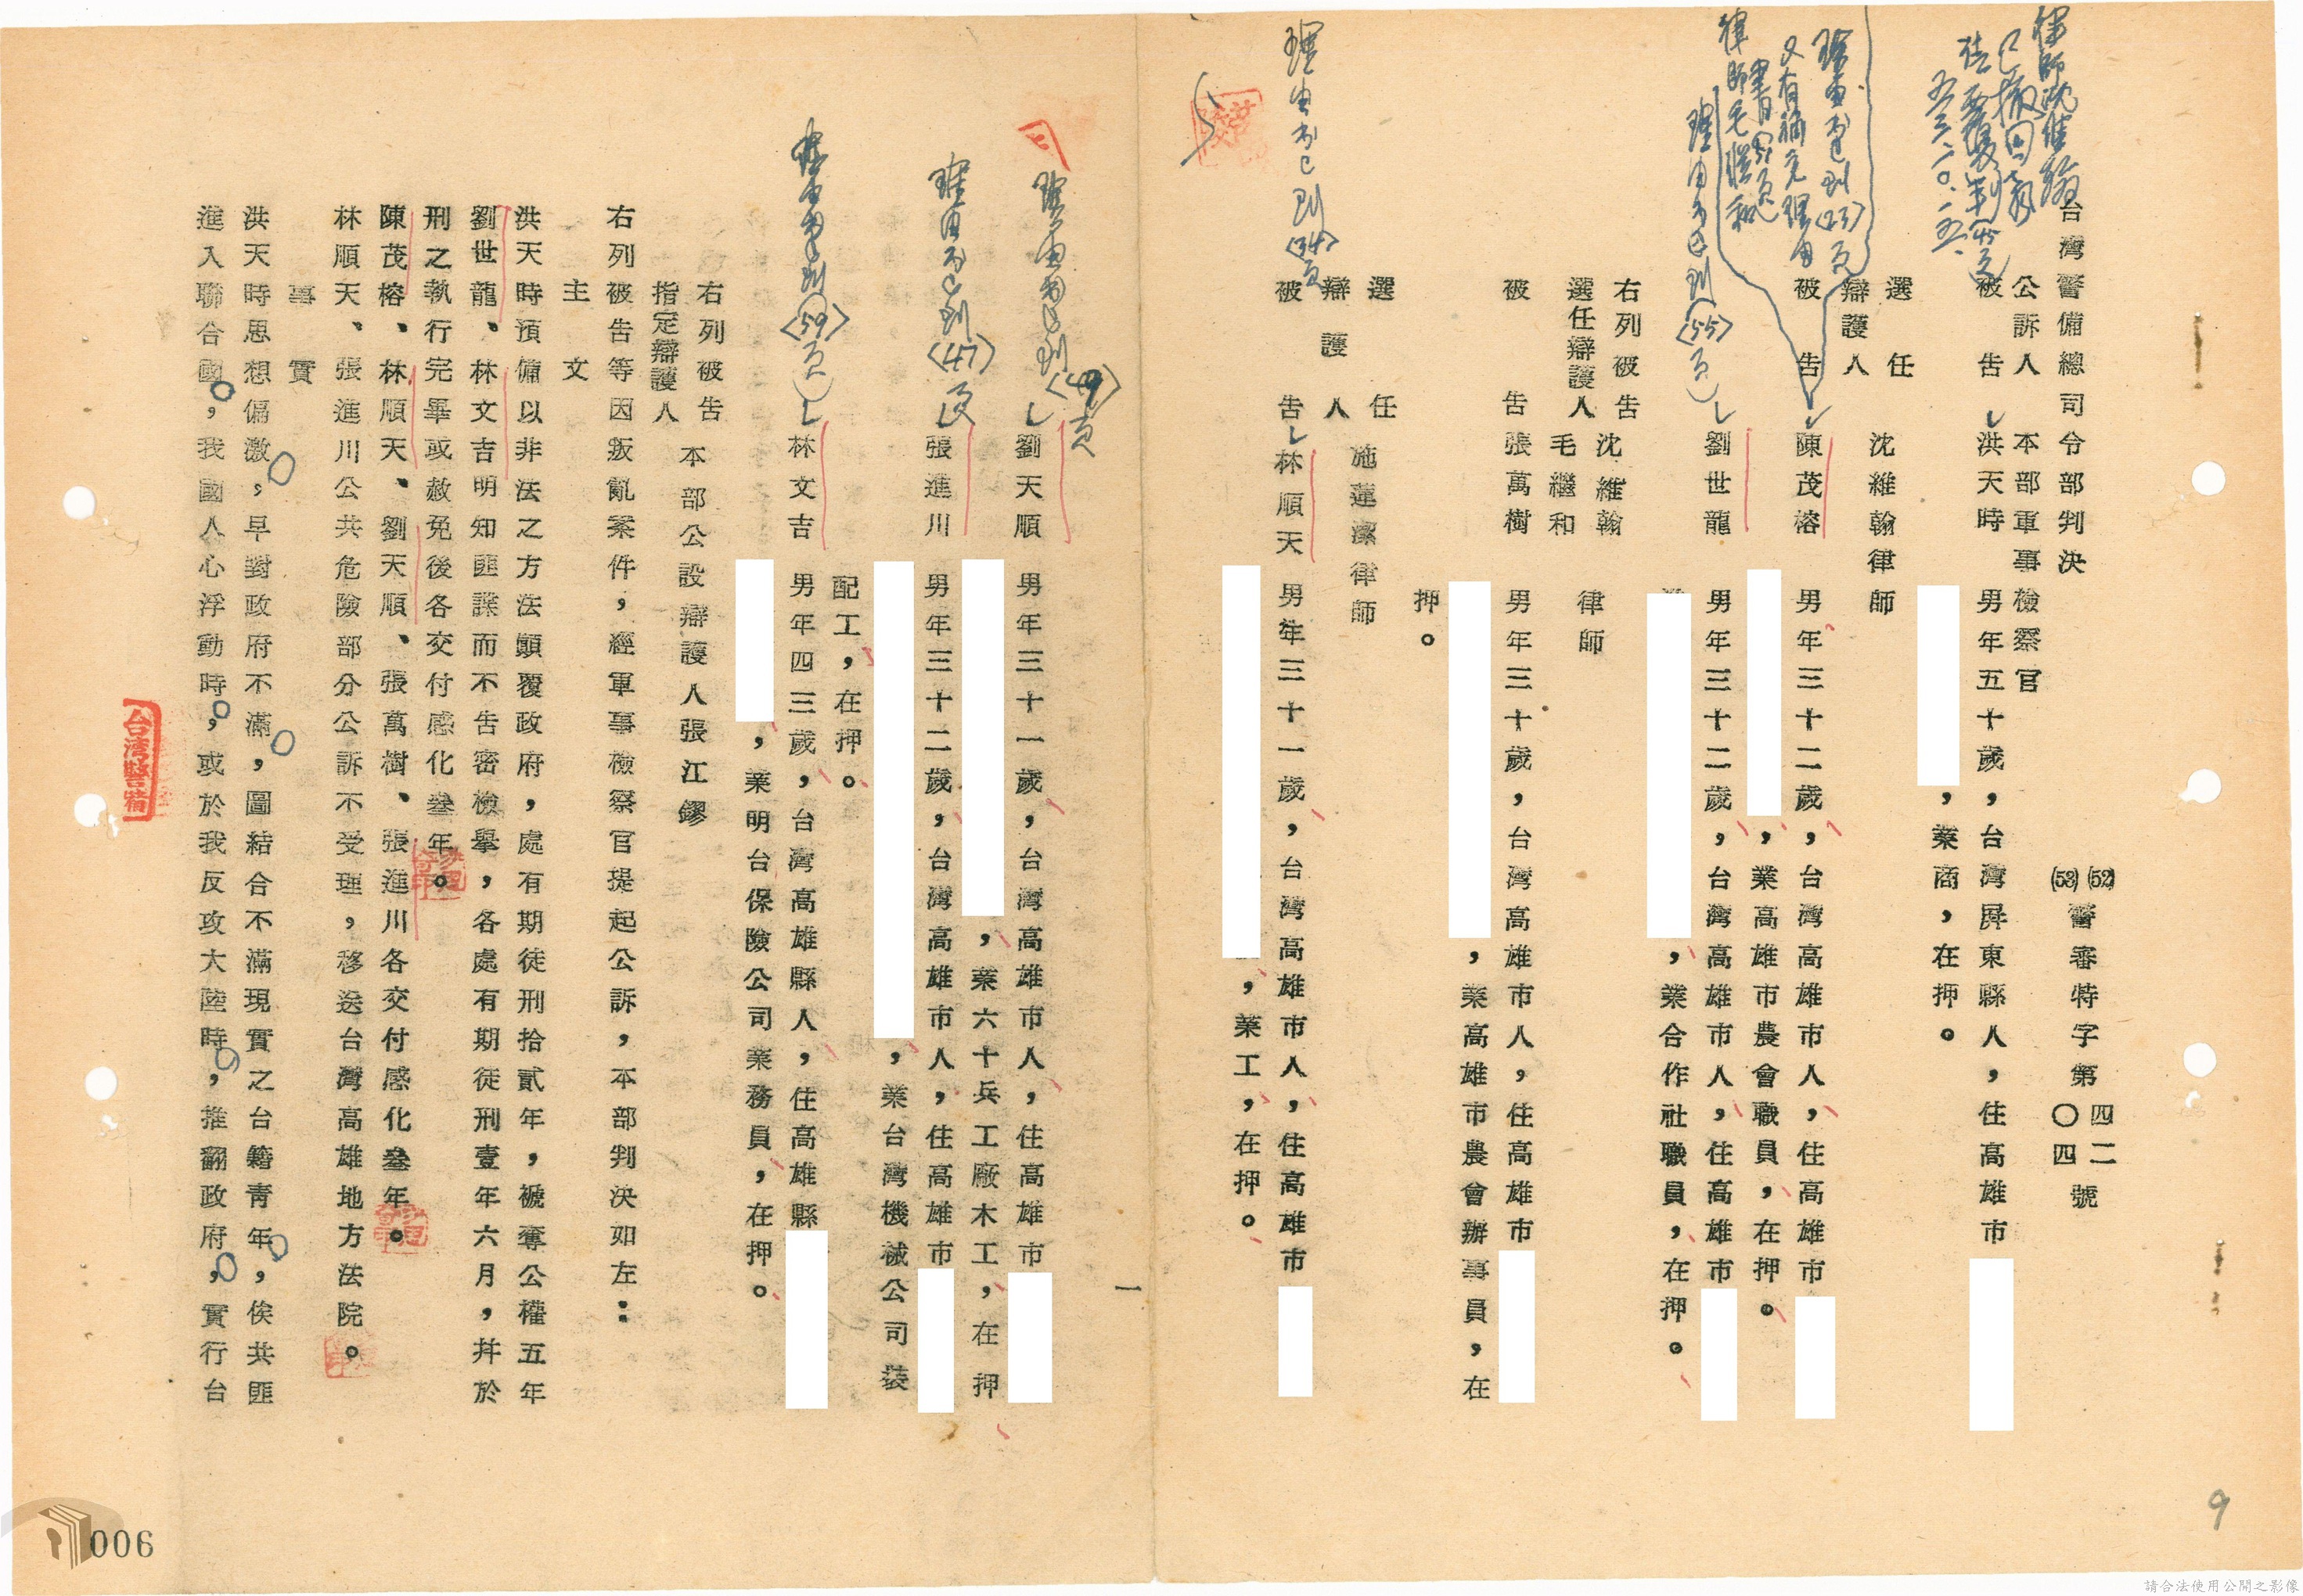 台灣警備總司令部判決
(52)警審特字第四二號
(53)警審特字第〇四號
公訴人 本部軍事檢察官
被告 洪天時 男年五十歲，台灣屏東縣人，住高雄市
，業商，在押。
選任辯護人 沈維翰律師
被告 陳茂榕 男年三十二歲，台灣高雄市人，住高雄市
，業高雄市農會職員，在押。
劉世龍 男年三十二歲，台灣高雄市人，住高雄市
，業合作社職員，在押。
右列被告
選任辯護人 沈維翰 毛繼和 律師
被告 張萬樹 男年三十歲，台灣高雄市人，住高雄市
，業高雄市農會辦事員，在
押。
選任辯護人 施蓮潔律師
被告 林順天 男年三十一歲，台灣高雄市人，住高雄市
，業工，在押。
一
劉天順 男年三十一歲，台灣高雄市人，住高雄市
，業六十兵工廠木工，在押
張進川 男年三十二歲，台灣高雄市人，住高雄市
，業台灣機械公司裝
配工，在押。
林文吉 男年四三歲，台灣高雄縣人，住高雄縣
，業明台保險公司業務員，在押。
右列被告
指定辯護人 本部公設辯護人張江鏐
右列被告等因叛亂案件，經軍事檢察官提起公訴，本部判決如左：
主文
洪天時預備以非法之方法顛覆政府，處有期徒刑拾貳年，褫奪公權五年
劉世龍、林文吉明知匪諜而不告密檢舉，各處有期徒刑壹年六月，幷於
刑之執行完畢或赦免後各交付感化叁年。
陳茂榕、林順天、劉天順、張萬樹、張進川各交付感化叁年。
林順天、張進川公共危險部分公訴不受理，移送台灣高雄地方法院。
事實
洪天時思想偏激，早對政府不滿，圖結合不滿現實之台籍青年，俟共匪
進入聯合國，我國人心浮動時，或於我反攻大陸時，推翻政府，實行台
律師沈維翰
已撤回
五三、二、〇、二五、
理由書已到〈23〉頁
又有補充理由
律師毛繼和
理由書已到〈55〉頁
理由書已到〈34〉頁
理由書已到〈49〉頁
理由書已到〈47〉頁
理由書已到〈59〉頁
台灣警備
9
006
請合法使用公開之影像